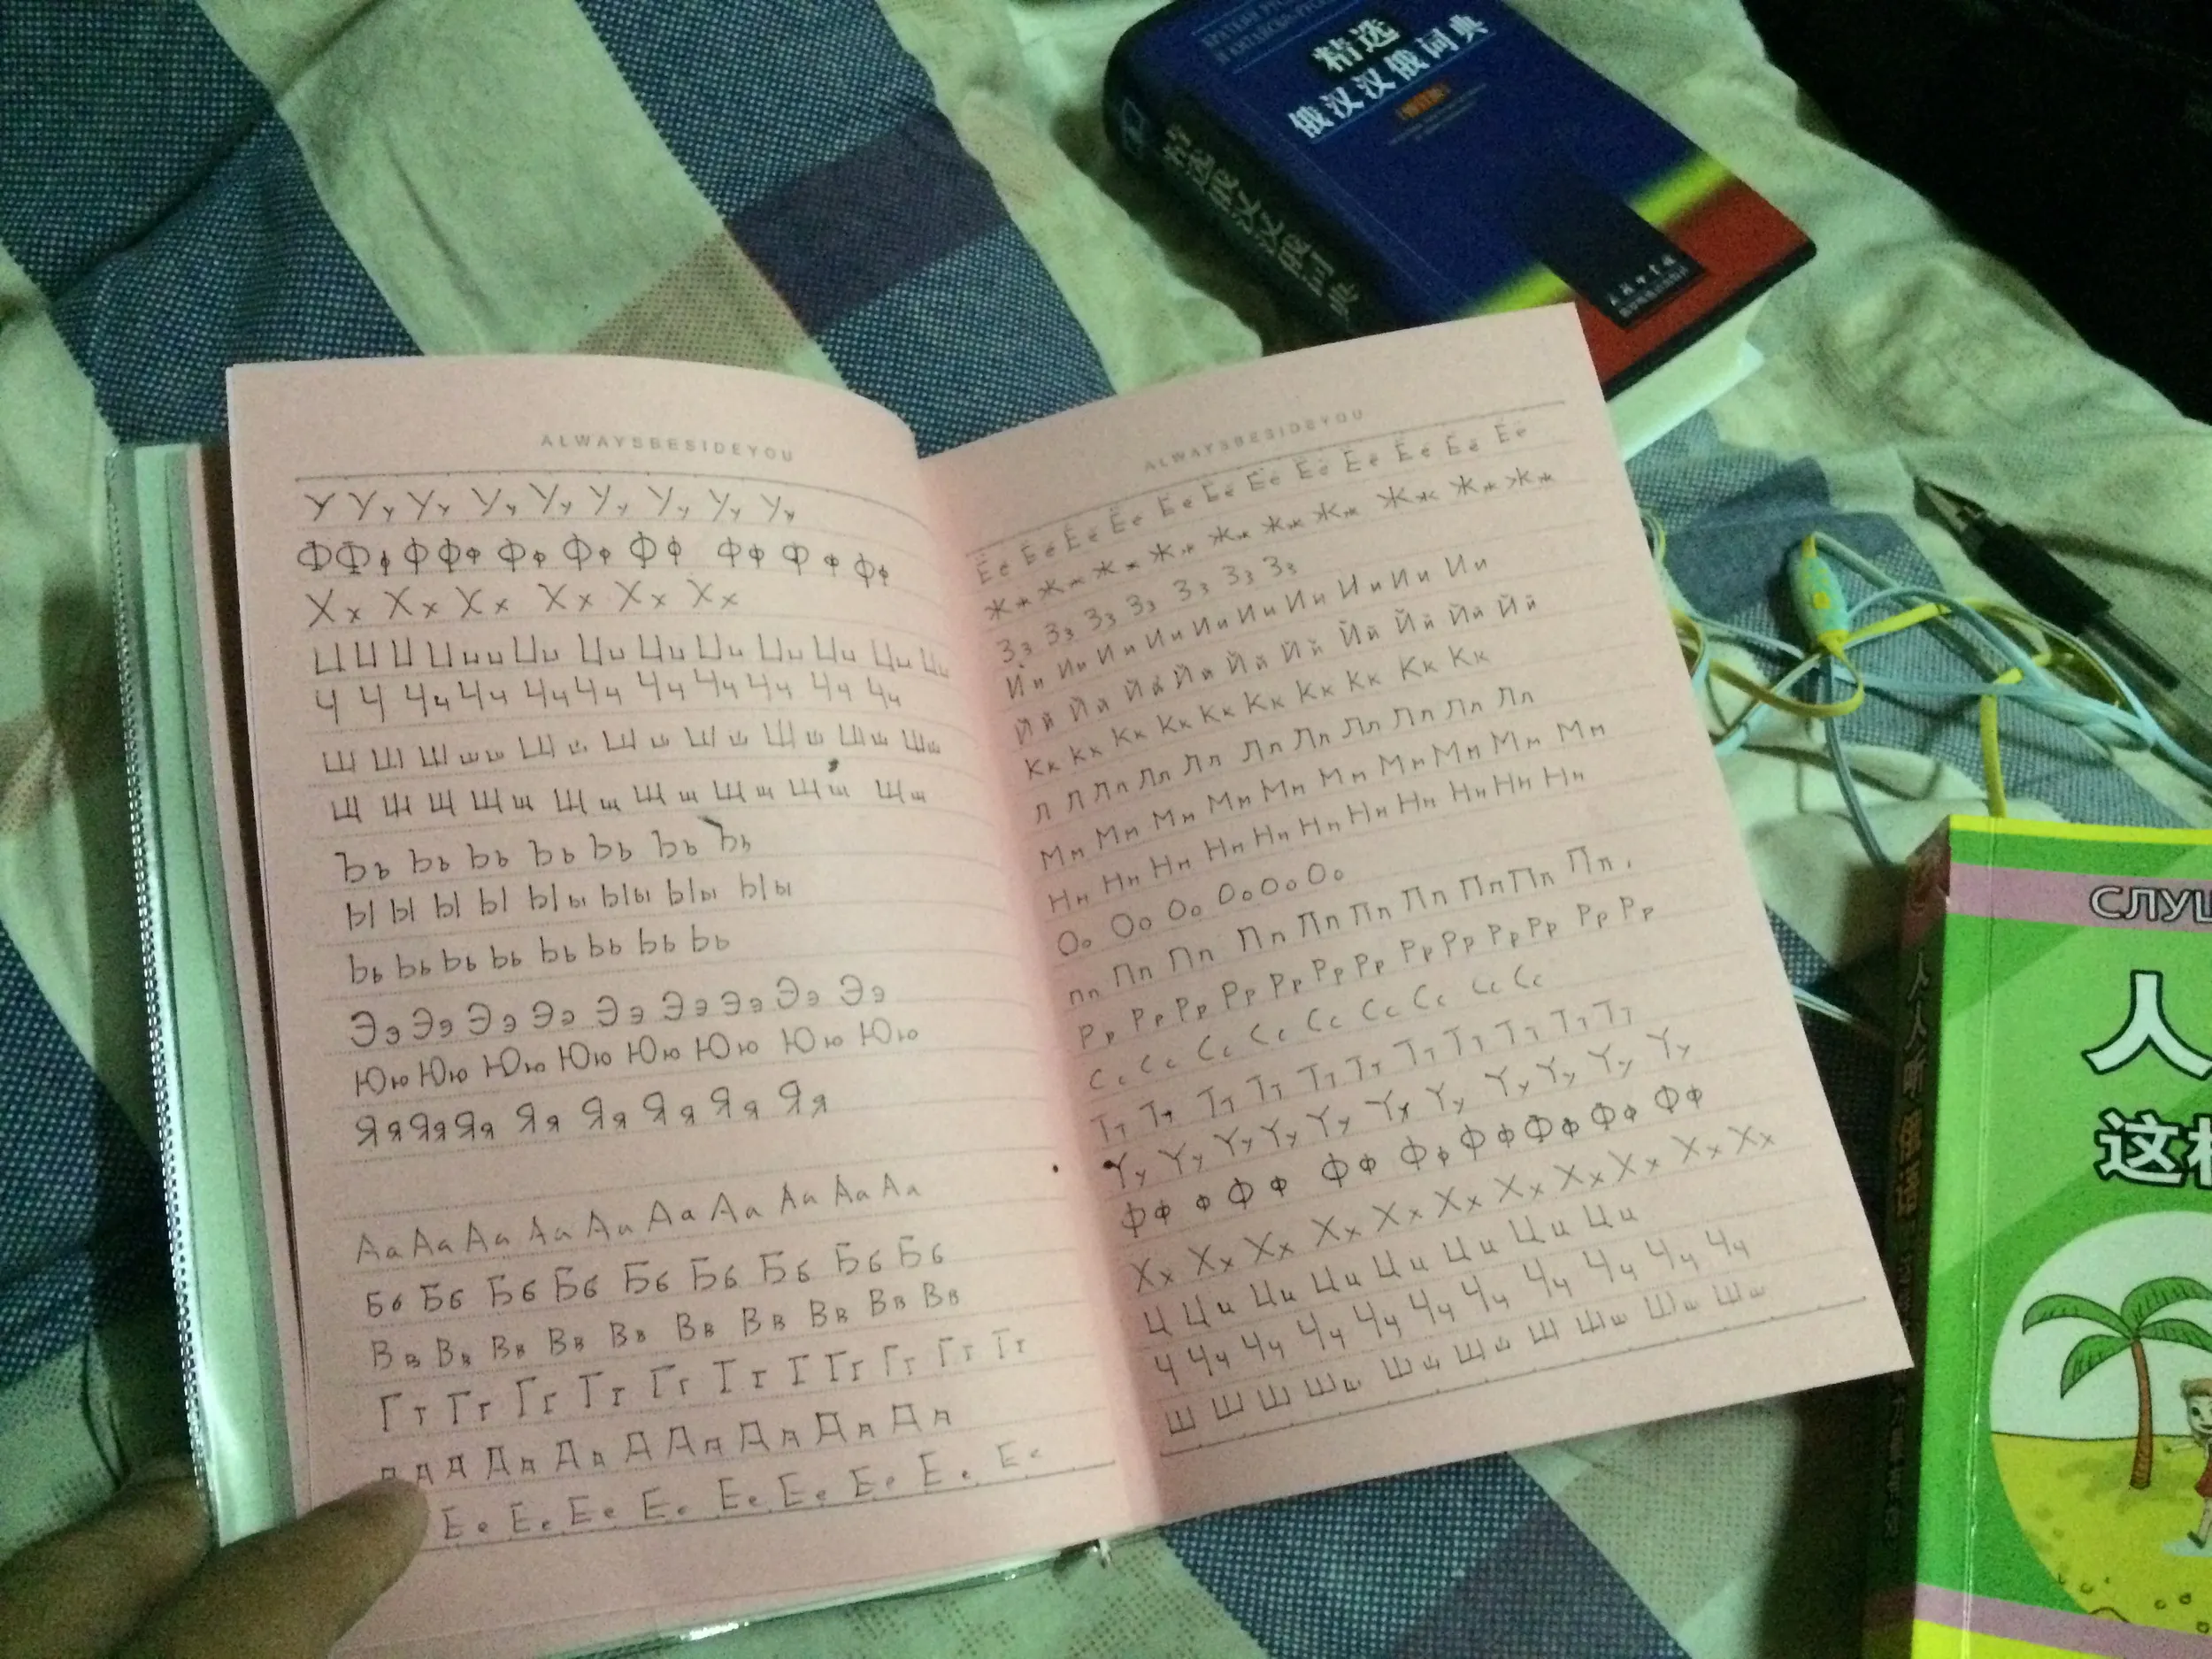 ALWAYSBESIDEYOU
У Уу Уу Уу Уу Уу Уу Уу Уу
ФФф ФФф Фф Фф Фф Фф Ф ф Фф
Хх Хх Хх Хх Хх Хх
Ц Ц Ц Ццц Цц Цц Цц Цц Цц Цц Цц Цц
Ч Ч Чч Чч Чч Чч Чч Чч Чч Чч Чч
Ш Ш Ш ш ш Ш ш Ш ш Ш ш Ш ш Шш Шш
Щ Щ Щ Щщ Щщ Щщ Щщ Щщ Щщ
Ъъ Ъъ Ъъ Ъъ Ъъ Ъъ Ъъ
Ы Ы Ы Ы Ыы Ыы Ыы Ыы
Ьь Ьь Ьь Ьь Ьь Ьь Ьь Ьь
Ээ Ээ Ээ Ээ Ээ Ээ Ээ Ээ Ээ
Юю Юю Юю Юю Юю Юю Юю Юю
Яя Яя Яя Яя Яя Яя Яя Яя
Аа Аа Аа Аа Аа Аа Аа Аа Аа Аа
Бб Бб Бб Бб Бб Бб Бб Бб Бб
Вв Вв Вв Вв Вв Вв Вв Вв Вв Вв
Гг Гг Гг Гг Гг Гг Г Гг Гг Гг Гг
Д Д Дд Дд Д Дд Дд Дд Дд
Ее Ее Ее Ее Ее Ее Ее Ее Ее
ALWAYSBESIDEYOU
Ёё Ёё Ёё Ёё Ёё Ёё Ёё Ёё Ёё Ёё Ёё Ёё
Жж Жж Жж Жж Жж Жж Жж Жж Жж Жж
Зз Зз Зз Зз Зз Зз Зз
Ии Ии Ии Ии Ии Ии Ии Ии Ии Ии
Йй Йй Йй Йй Йй Йй Йй Йй Йй Йй
Кк Кк Кк Кк Кк Кк Кк Кк Кк Кк
Л Л Лл Лл Лл Лл Лл Лл Лл Лл Лл
Мм Мм Мм Мм Мм Мм Мм Мм Мм Мм
Нн Нн Нн Нн Нн Нн Нн Нн Нн Нн Нн
Оо Оо Оо Оо Оо Оо
пп Пп Пп Пп Пп Пп Пп Пп Пп Пп.
Рр Рр Рр Рр Рр Рр Рр Рр Рр Рр Рр Рр Рр
Сс Сс Сс Сс Сс Сс Сс Сс Сс
Тт Тт Тт Тт Тт Тт Тт Тт Тт Тт Тт
Уу Уу Уу Уу Уу Уу Уу Уу Уу Уу Уу
Фф ф Фф Фф Фф Фф Фф Фф Фф
Хх Хх Хх Хх Хх Хх Хх Хх Хх Хх Хх
Ц Цц Цц Цц Цц Цц Цц Цц
Ч Чч Чч Чч Чч Чч Чч Чч Чч Чч
Ш Ш Ш Шш Шш Шш Ш Шш Шш Шш
精选
俄汉汉俄词典
人
这